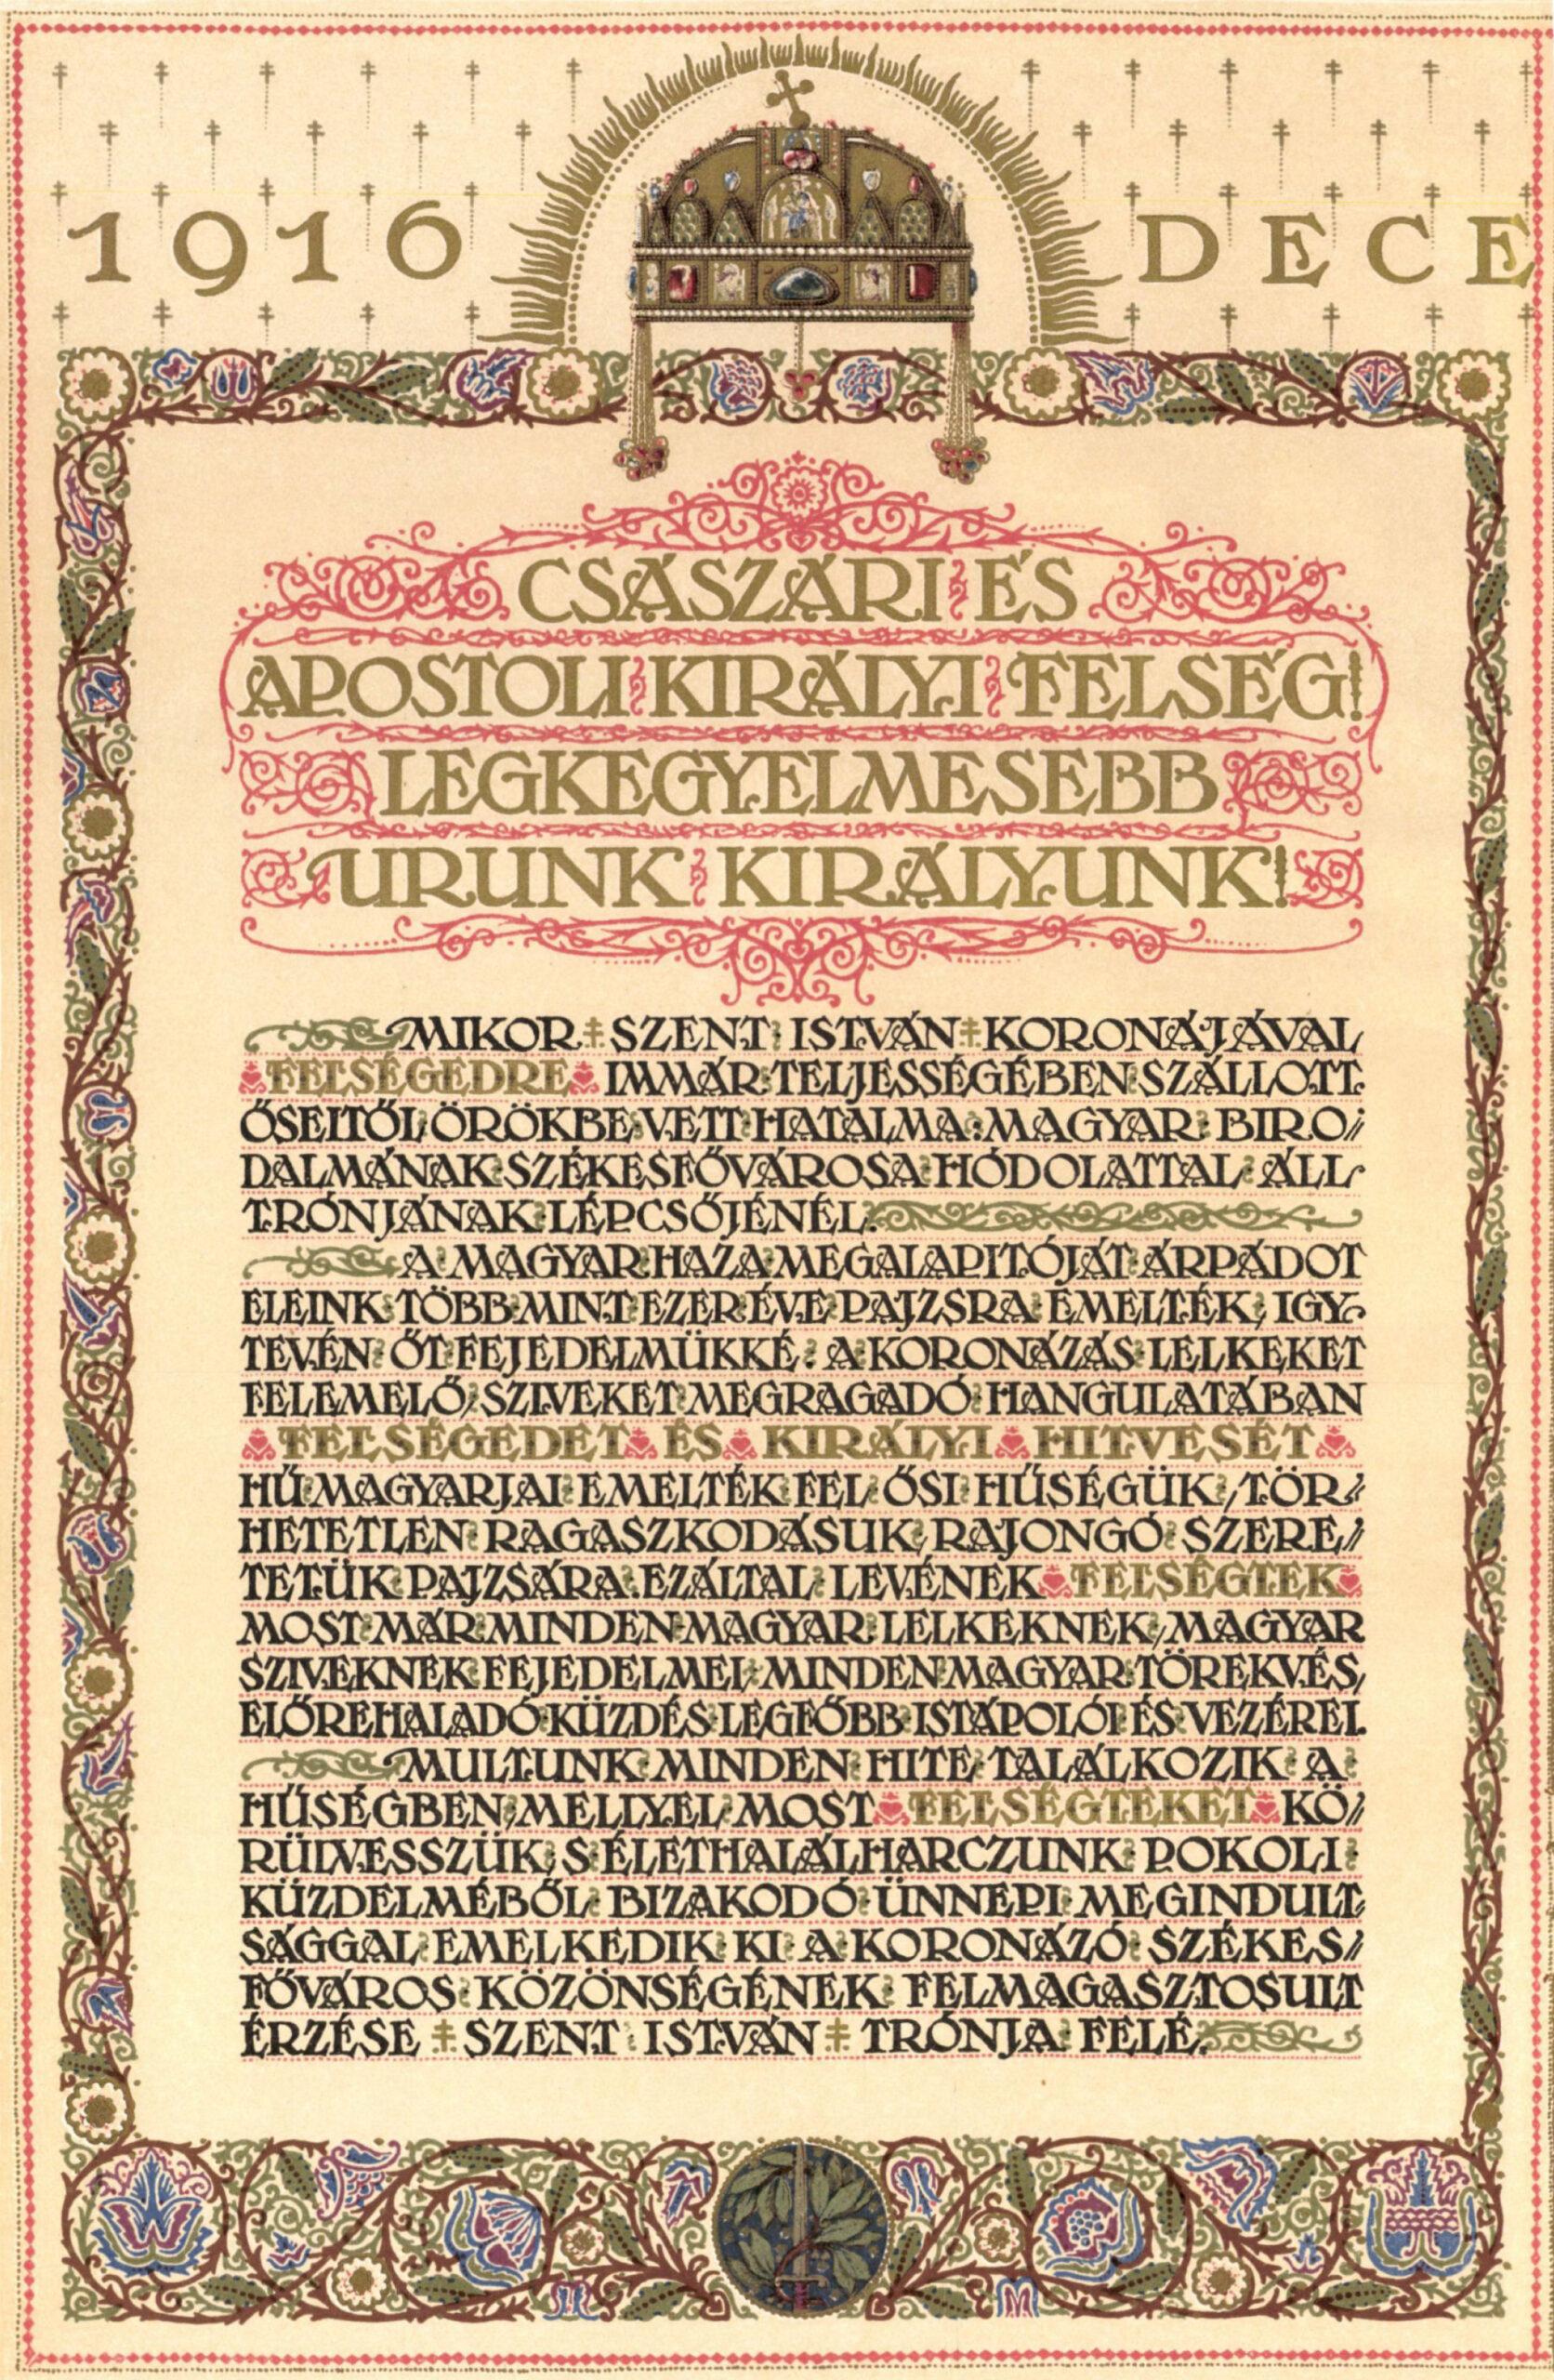 1916 DECE
CSÁSZÁRI ÉS
APOSTOLI KIRÁLYI FELSÉG!
LEGKEGYELMESEBB
URUNK KIRÁLYUNK!
MIKOR SZENT ISTVÁN KORONÁJÁVAL
FELSÉGEDRE IMMÁR TELJESSÉGÉBEN SZÁLLOTT
ŐSEITŐL ÖRÖKBE VETT HATALMA: MAGYAR BIRO/
DALMÁNAK SZÉKESFŐVÁROSA HÓDOLATTAL ÁLL
TRÓNJÁNAK LÉPCSŐJÉNÉL.
A MAGYAR HAZA MEGALAPITÓJÁT ÁRPÁDOT
ELEINK TÖBB MINT EZER ÉVE PAJZSRA EMELTÉK, IGY
TEVÉN ŐT FEJEDELMÜKKÉ: A KORONÁZÁS LELKEKET
FELEMELŐ, SZIVEKET MEGRAGADÓ HANGULATÁBAN
FELSÉGEDET ÉS KIRÁLYI HITVESÉT
HŰ MAGYARJAI EMELTÉK FEL ŐSI HŰSÉGÜK, TÖR/
HETETLEN RAGASZKODÁSUK, RAJONGÓ SZERE/
TETÜK PAJZSÁRA. EZÁLTAL LEVÉNEK FELSÉGTEK
MOST MÁR MINDEN MAGYAR LELKEKNEK, MAGYAR
SZIVEKNEK FEJEDELMEI, MINDEN MAGYAR TÖREKVÉS,
ELŐREHALADÓ KÜZDÉS LEGFŐBB ISTÁPOLÓI ÉS VEZÉREI.
MULTUNK MINDEN HITE TALÁLKOZIK A
HŰSÉGBEN, MELLYEL MOST FELSÉGTEKET KÖ/
RÜLVESSZÜK, S ÉLETHALÁLHARCZUNK POKOLI
KÜZDELMÉBŐL BIZAKODÓ ÜNNEPI MEGINDULT/
SÁGGAL EMELKEDIK KI A KORONÁZÓ SZÉKES/
FŐVÁROS KÖZÖNSÉGÉNEK FELMAGASZTOSULT
ÉRZÉSE SZENT ISTVÁN TRÓNJA FELÉ.